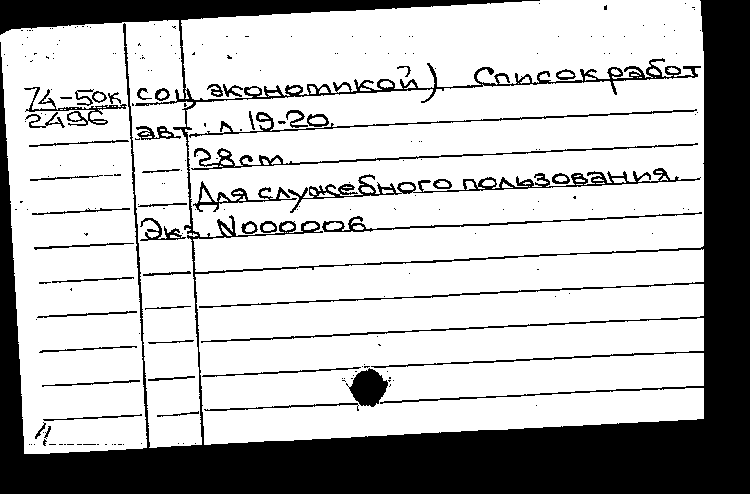 74-50к соц. экономикой) Список работ
2496 авт.: л. 19-20.
28 см.
Для служебного пользования.
Экз. N000006.